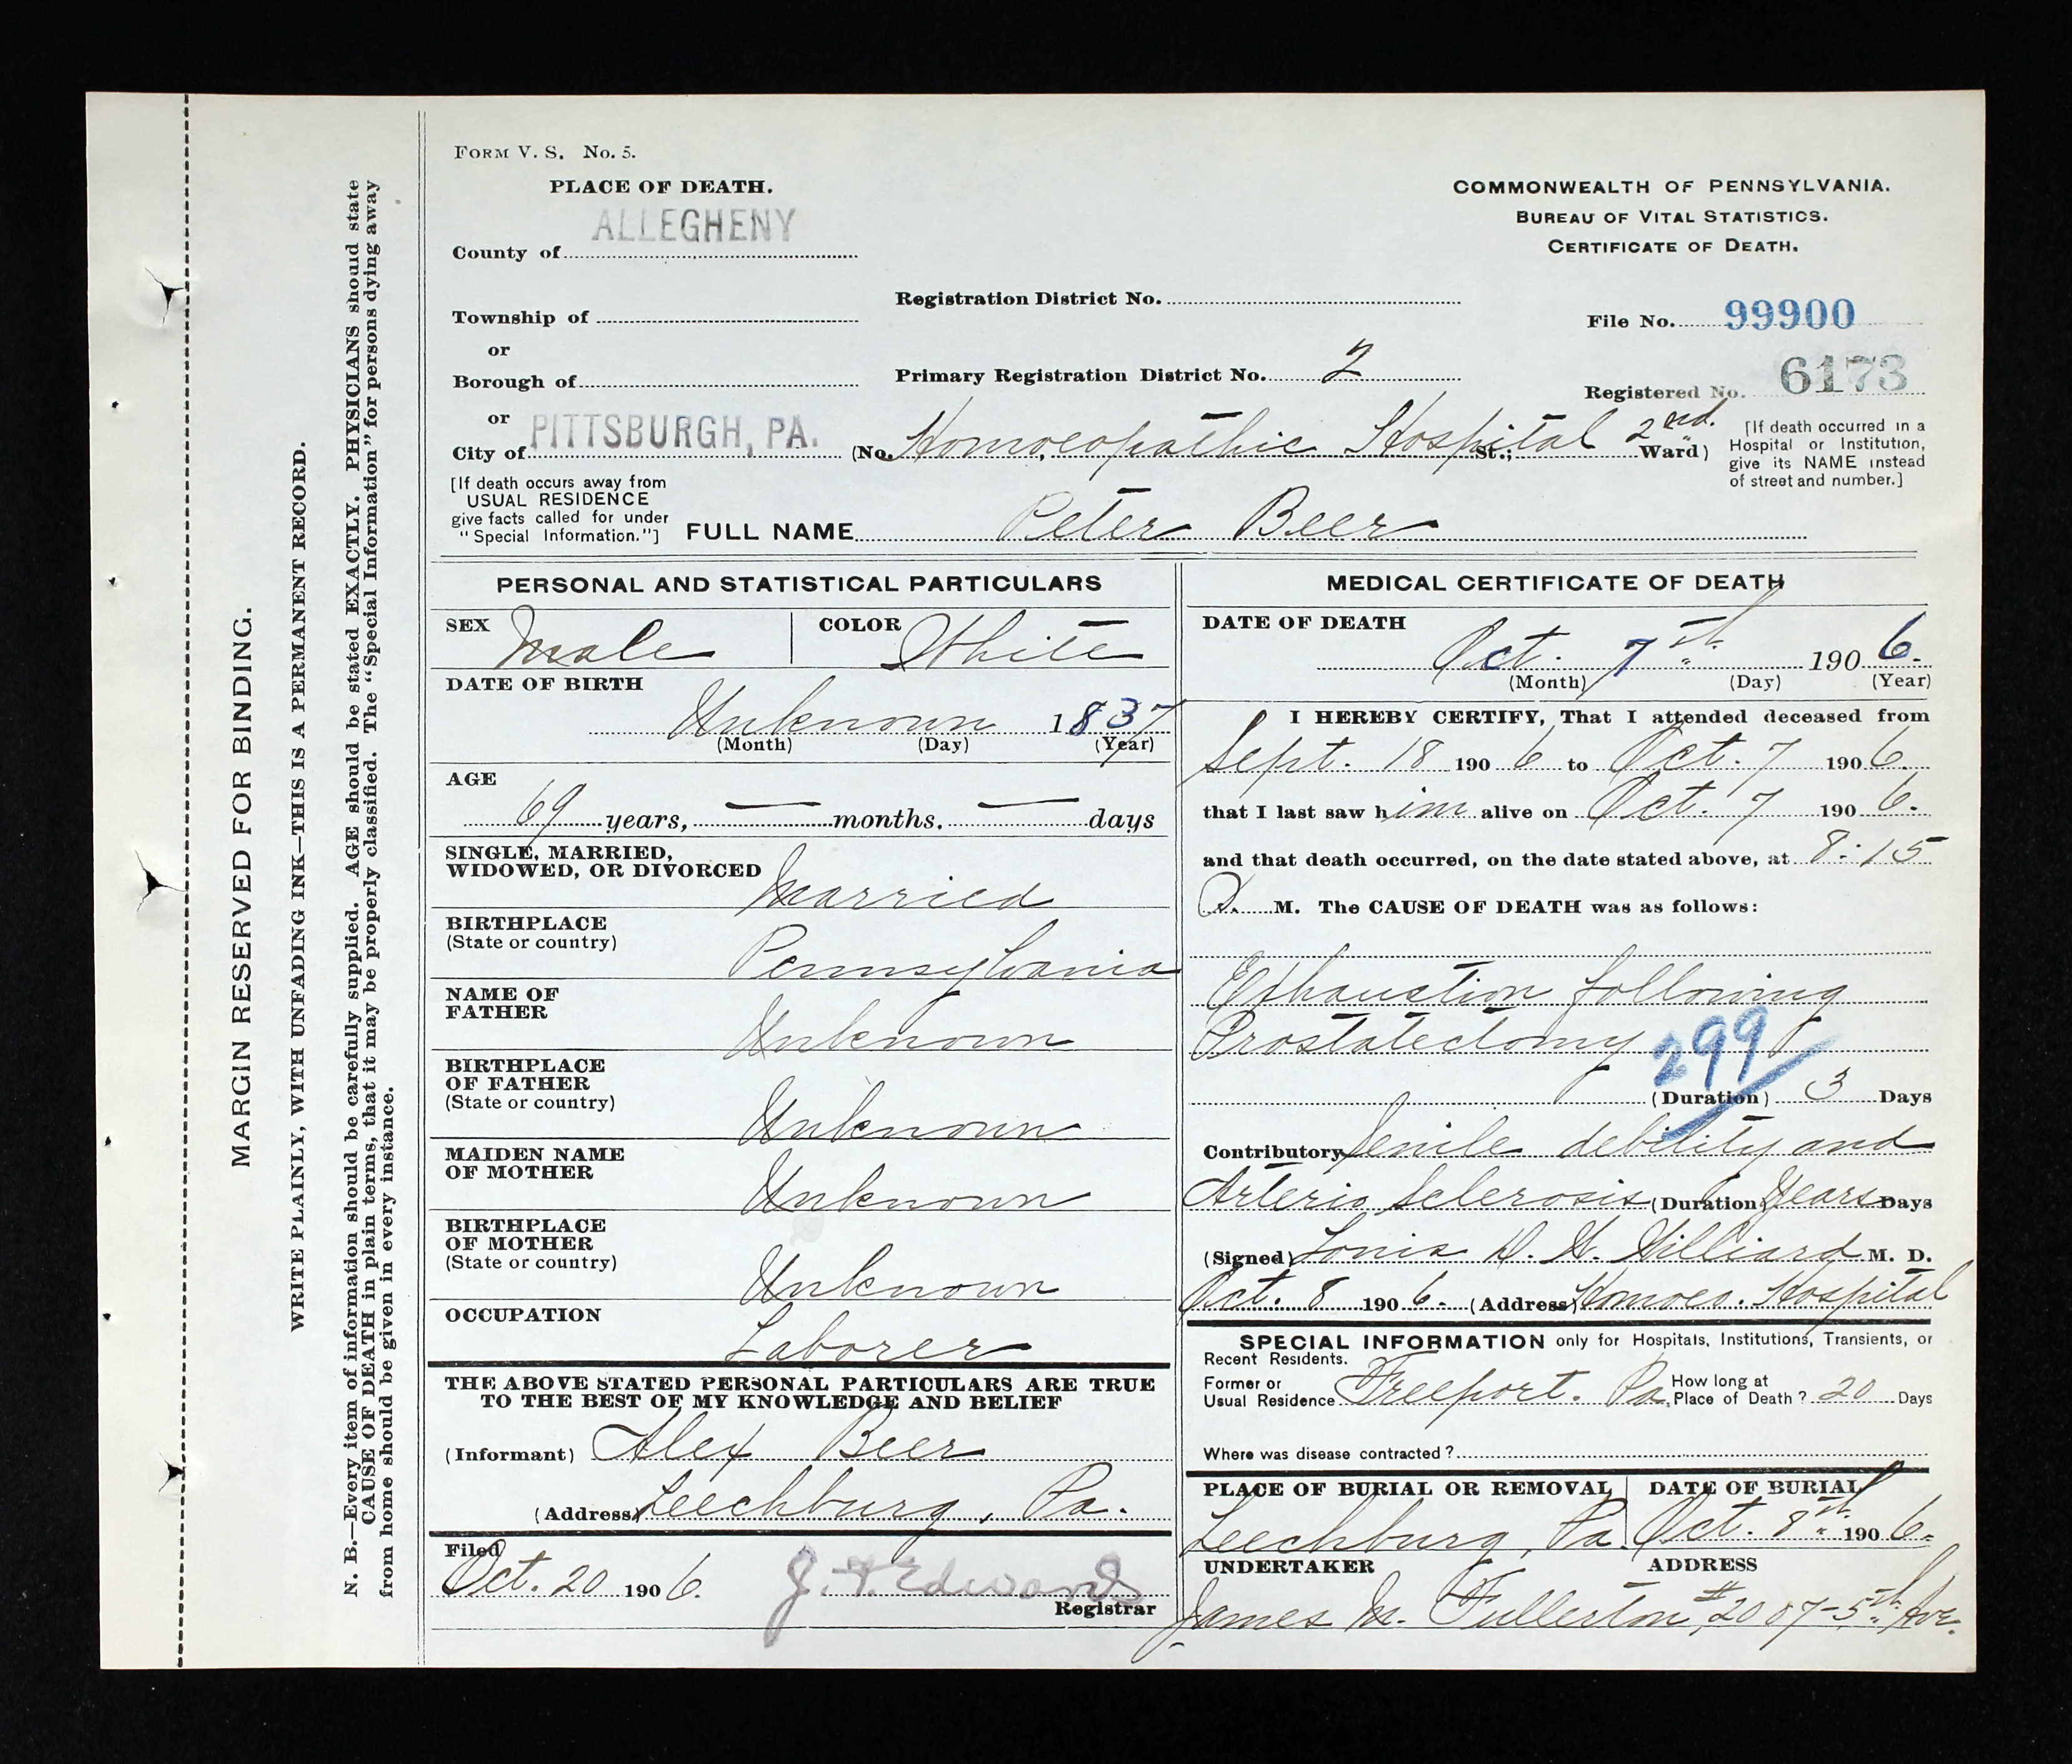 FORM V. S. No. 5.
PLACE OF DEATH.
COMMONWEALTH OF PENNSYLVANIA.
BUREAU OF VITAL STATISTICS.
CERTIFICATE OF DEATH.
County of ALLEGHENY
Registration District No.
Township of
File No. 99900
or
Primary Registration District No. 2
Borough of
Registered No. 6173
or
City of PITTSBURGH, PA. (No. Homoeopathic Hospital St.; 2nd. Ward)
[If death occurred in a
Hospital or Institution,
give its NAME instead
of street and number.]
[If death occurs away from
USUAL RESIDENCE
give facts called for under
"Special Information."]
FULL NAME Peter Beer
PERSONAL AND STATISTICAL PARTICULARS
SEX Male
COLOR White
DATE OF BIRTH
Unknown 1837
(Month) (Day) (Year)
AGE
69 years, — months. — days
SINGLE, MARRIED,
WIDOWED, OR DIVORCED Married
BIRTHPLACE
(State or country) Pennsylvania
NAME OF
FATHER Unknown
BIRTHPLACE
OF FATHER
(State or country) Unknown
MAIDEN NAME
OF MOTHER Unknown
BIRTHPLACE
OF MOTHER
(State or country) Unknown
OCCUPATION Laborer
THE ABOVE STATED PERSONAL PARTICULARS ARE TRUE
TO THE BEST OF MY KNOWLEDGE AND BELIEF
(Informant) Alex Beer
(Address) Leechburg, Pa.
Filed
Oct. 20 1906. J. F. Edwards
Registrar
MEDICAL CERTIFICATE OF DEATH
DATE OF DEATH
Oct. 7th 1906.
(Month) (Day) (Year)
I HEREBY CERTIFY, That I attended deceased from
Sept. 18 1906 to Oct. 7 1906.
that I last saw him alive on Oct. 7 1906.
and that death occurred, on the date stated above, at 8:15
M. The CAUSE OF DEATH was as follows:
Exhaustion following
Prostatectomy 299
(Duration) 3 Days
Contributory Senile debility and
Arterio Sclerosis (Duration) Years Days
(Signed) Louis D. H. Hilliard M. D.
Oct. 8 1906. (Address) Homoeo. Hospital
SPECIAL INFORMATION only for Hospitals, Institutions, Transients, or
Recent Residents.
Former or
Usual Residence Freeport. Pa.
How long at
Place of Death? 20 Days
Where was disease contracted?
PLACE OF BURIAL OR REMOVAL
Leechburg, Pa.
DATE OF BURIAL
Oct. 8th 1906.
UNDERTAKER
ADDRESS
James M. Fullerton #2007-5th Ave.
MARGIN RESERVED FOR BINDING.
WRITE PLAINLY, WITH UNFADING INK—THIS IS A PERMANENT RECORD.
N. B.—Every item of information should be carefully supplied. AGE should be stated EXACTLY. PHYSICIANS should state
CAUSE OF DEATH in plain terms, that it may be properly classified. The "Special Information" for persons dying away
from home should be given in every instance.